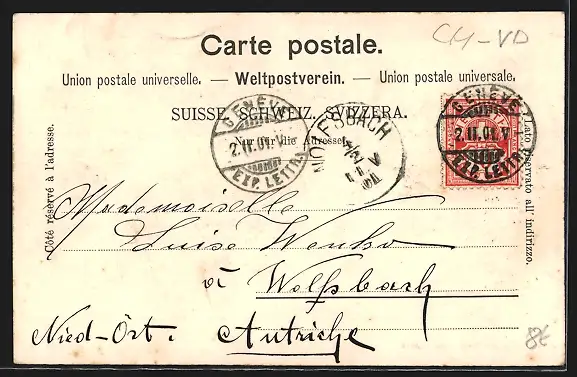 CH-VD
Carte postale.
Union postale universelle. — Weltpostverein. — Union postale universale.
SUISSE. SCHWEIZ. SVIZZERA.
Nur für die Adresse.
Côté réservé à l'adresse.
Lato riservato all' indirizzo.
GENÈVE
2.II.01.V
EXP. LETTR.
WOLFSBACH
GENÈVE
2.II.01.V
EXP. LETTR.
Mademoiselle
Luise
à Wolfsbach
Nied-Öst. Autriche
8€